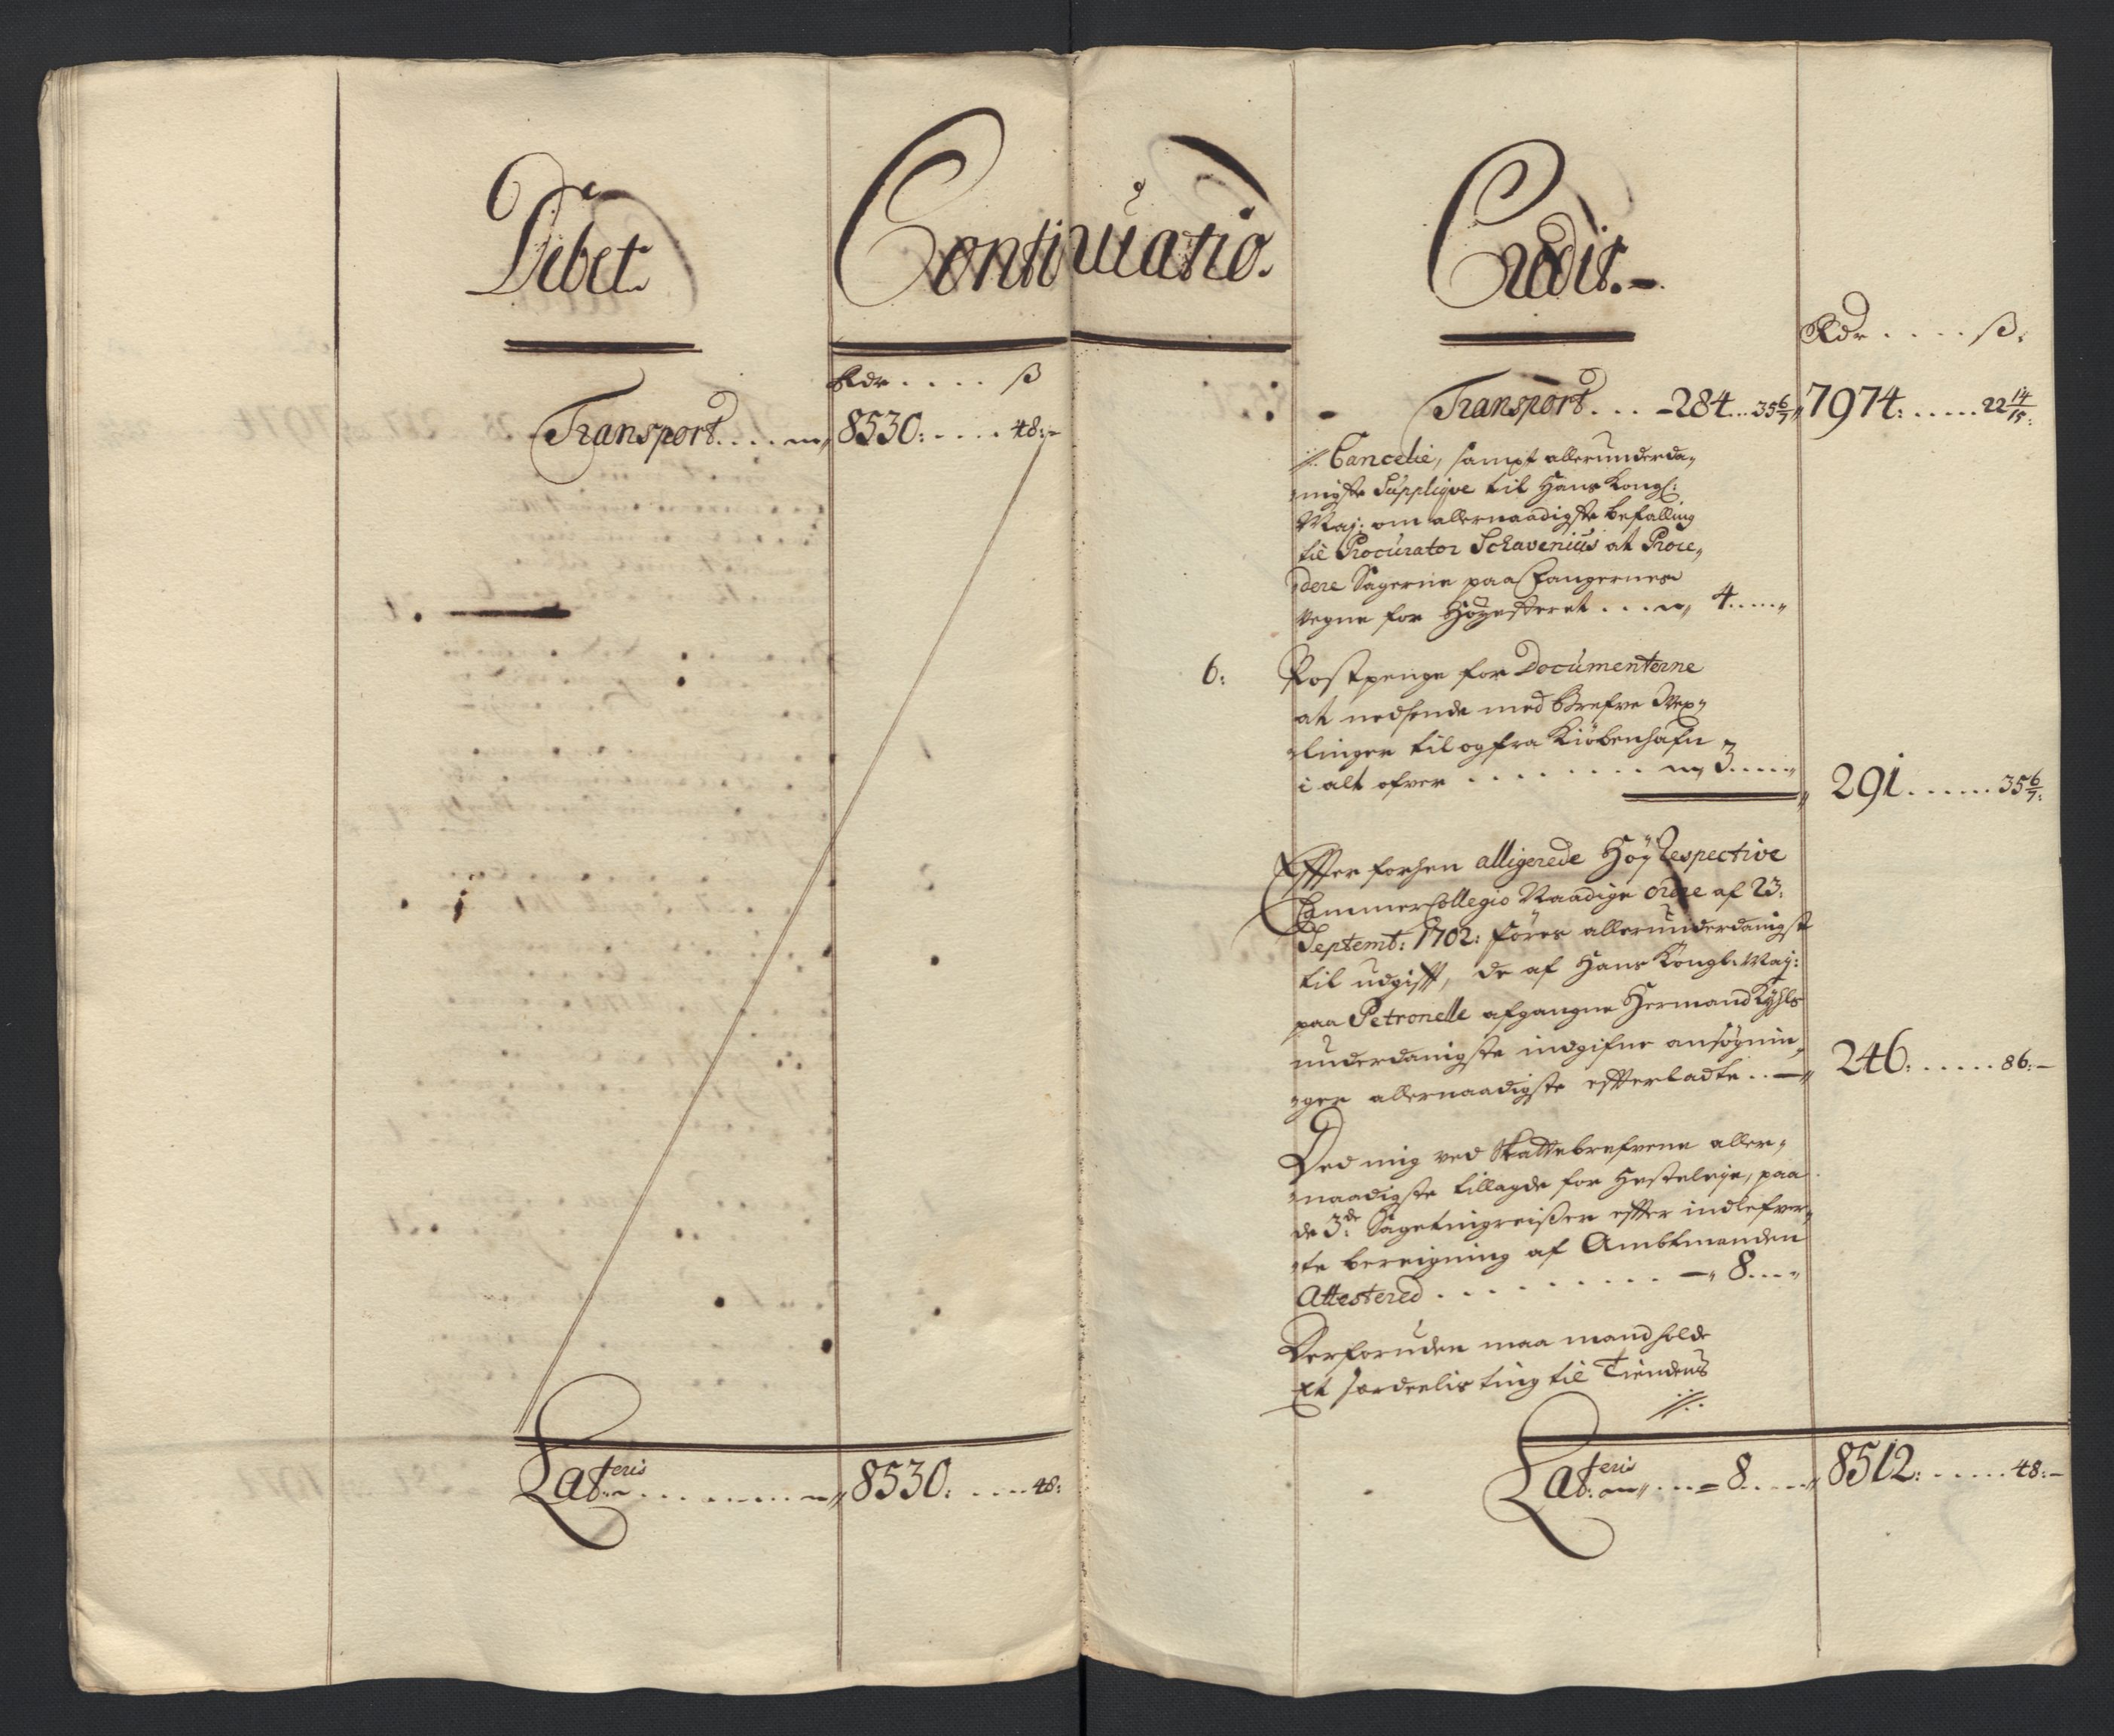 Debet
Continuatio.
Rdr .... ß
Transport .... 8530: .... 48:-
Lateris .......... 8530: .... 48:
Credit.-
Rdr .... ß.
Transport ... 284 ... 35 6/7 7974: ..... 22 14/15:
Cancelie, sampt allerunderda-
nigste Supplique til Hans Kongl:
Maj: om allernaadigste befalling
til Procurator Schavenius at Proce-
dere Sagerne paa Fangernes
vegne for Høyesteret .... 4....
6: Postpenge for Documenterne
at nedsende med brefve Vex-
linger til og fra Kiöbenhafn
i alt ofver ........ 3.....
291 ...... 35 6/7:
Effter forhen alligerede Høy Respective
Cammer Collegio Naadige ordre af 23:
Septemb: 1702: föres allerunderdanigst
til udgifft, de af Hans Kongl: May:
paa Petronelle afgangne Hermand Kyhls
underdanigste indgifne ansøgnin-
ger allernaadigste efterladte .. 246: ..... 86:-
Ded mig ved Skattebrefvene aller-
naadigste tillagde for Hesteleye, paa
de 3de: Sagetingreiser effter indlefver-
te bereigning af Ambtmanden
Attestered ........ 8....
Derforuden maa mand holde
et særdeelis ting til Tiendens
Lateris .... 8.... 8512: ..... 48:-